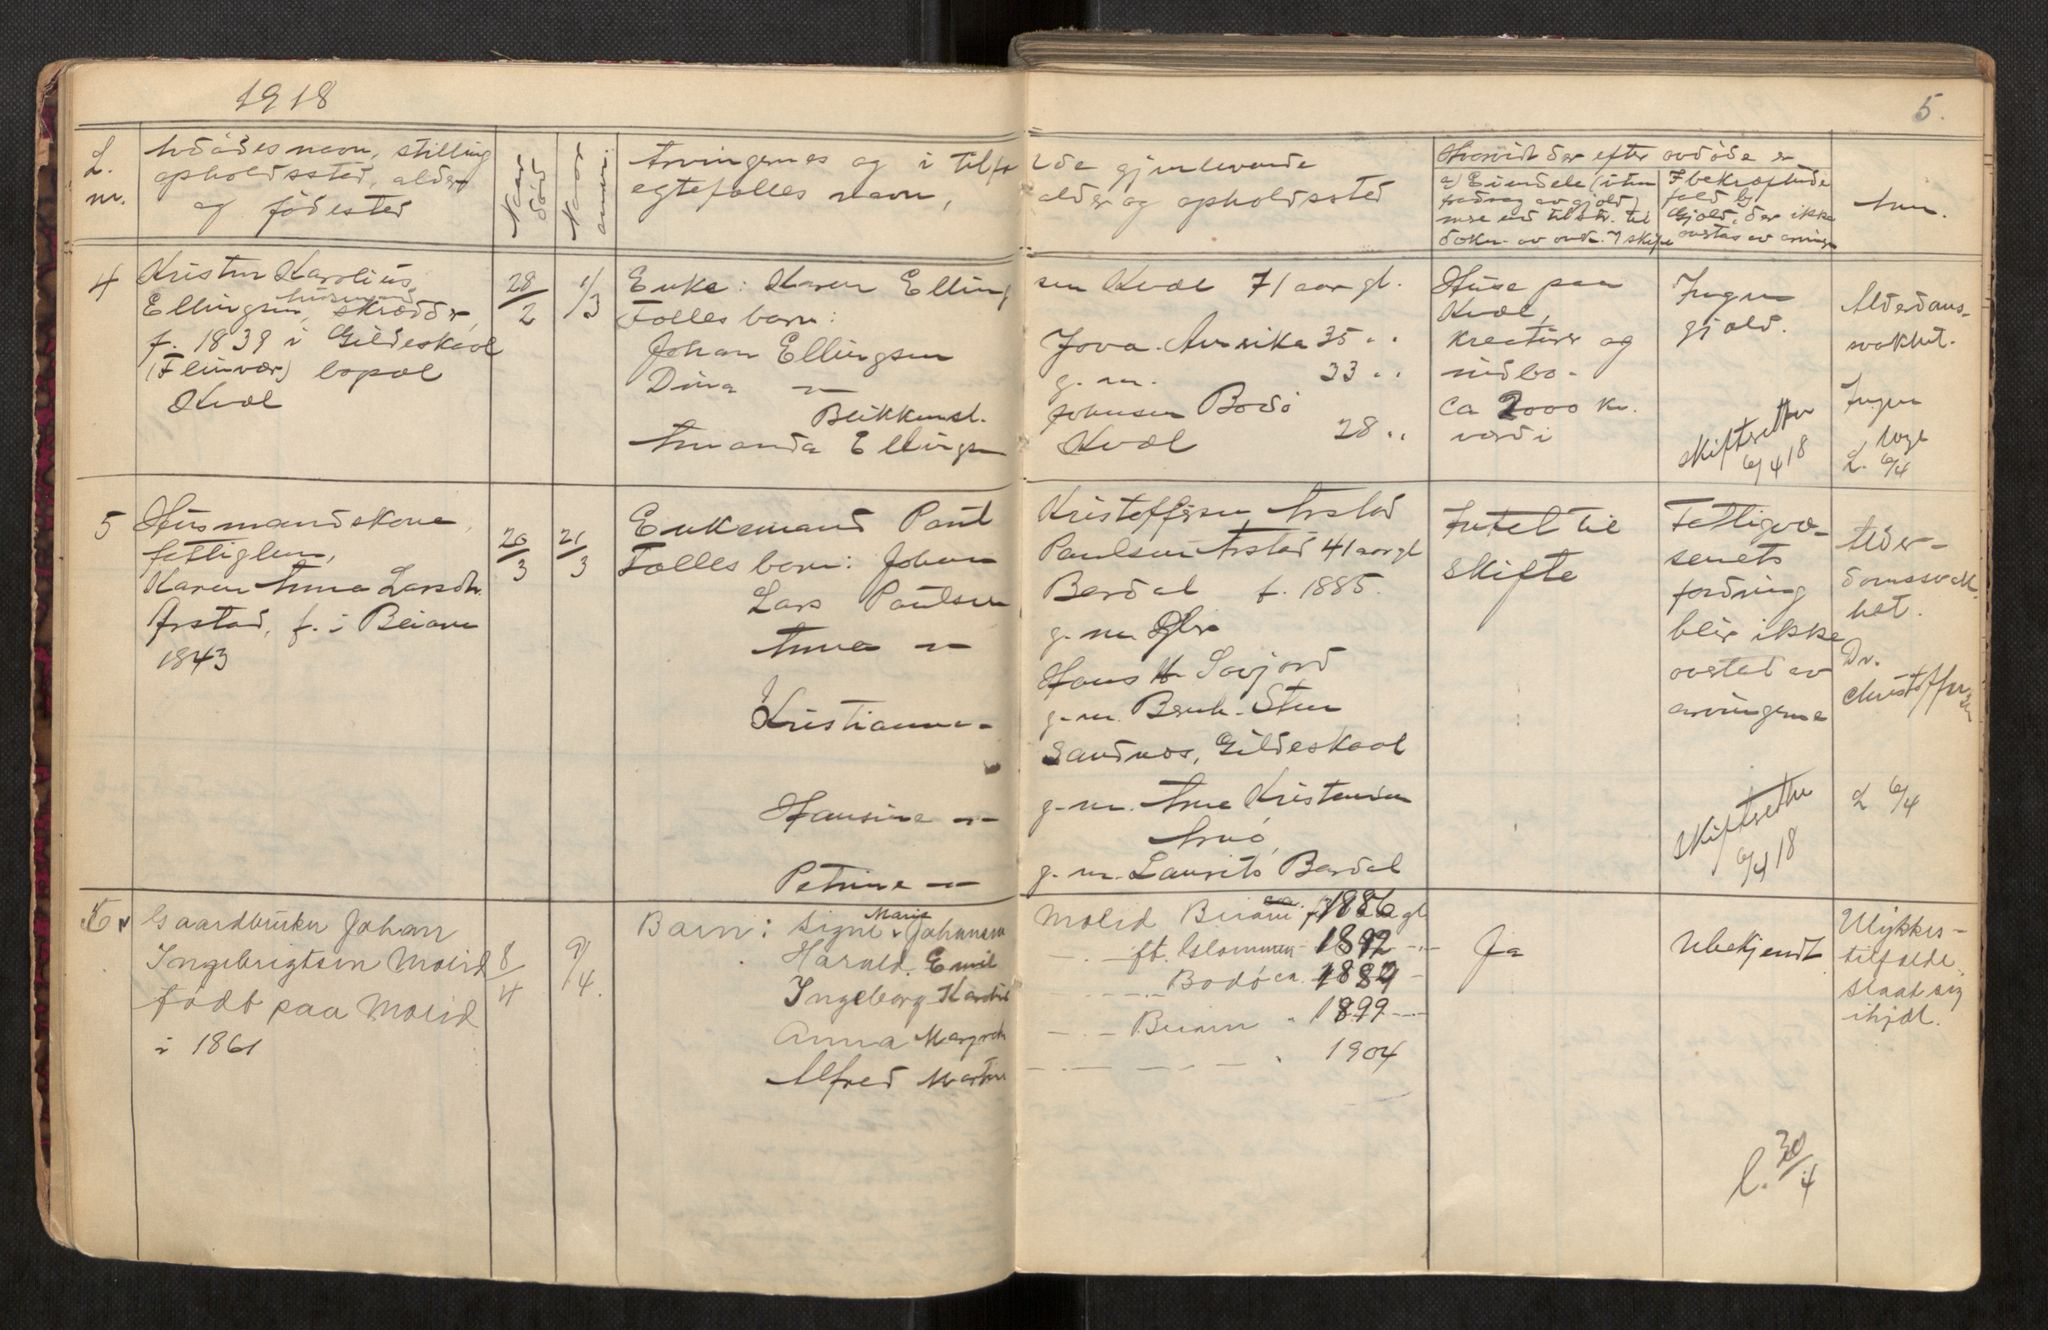 1918
5.
L.
nr.
Avdødes navn, stilling
opholdssted, alder
og fødested
Naar
død
Naar
anm.
Arvingernes og i tilfæ
egtefælles navn,
lde gjenlevende
alder og opholdssted
Hvorvidt der efter avdøde er
a) Eiendele (uten
fradrag av gjæld)
mere end tilstr. til
dækn. av omk. v/ skifte
I bekræftende
fald b)
Gjæld, der ikke
overtas av arving
Anm.
4
Kristen Karolius
Ellingsen, husmand skrædder,
f. 1839 i Gildeskaal
(Fleinvær) bopæl
Kvæl
28/2
1/3
Enke: Karen Elling
Fælles barn:
Johan Ellingsen
Dina —"—
Blikkensl.
Amanda Ellingsen
sen Kvæl 71 aar gl.
Jova. Amerika 35 "
g. m. 33 "
Johnsen Bodø
Kvæl 28 "
Huse paa
Kvæl,
kreature og
indbo-
Ca 2000 kr.
værdi
Ingen
gjæld.
Skifteretten
6/4 18
Alderdoms-
svakhet.
Ingen
læge
L. 6/4
5
Husmandskone,
fattiglem,
Karen Anna Larsdtr.
Arstad, f. i Beiarn
1843
20/3
21/3
Enkemand Paul
Fælles barn: Johan
Lars Paulsen
Anna —"—
Kristianna —
Hansine —"—
Petrine —"—
Kristoffersen Arstad
Paulsen Arstad 41 aar gl
Bardal f. 1885.
g. m.
Hans H. Savjord
g. m. Bernh. Sten
Sandnes, Gildeskaal
g. m. Arne Kristensen
Arnø,
g. m. Laurits Bardal
Intet til
skifte
Fattigvæ-
senets
fordring
blir ikke
overtat av
arvingerne
Skifteretten
6/4 18
Alder-
domssvak
het.
Dr.
Christoffersen
L 6/4
6
Gaardbruker Johan
Ingebrigtsen Molid
født paa Molid
i 1861
8/4
9/4.
Barn: Signe Marie Johansen
Harald Emil
Ingeborg
Anna Margrete
Alfred Martin
Molid Beiarn ca. 1886
— " — ft. Glommen — 1892
— " — Bodø ca. 1889
— " — Beiarn " 1899
— — — — " 1904
Ja
Ubekjendt
Ulykkes-
tilfælde,
slaat sig
ihjæl.
l. 30/4